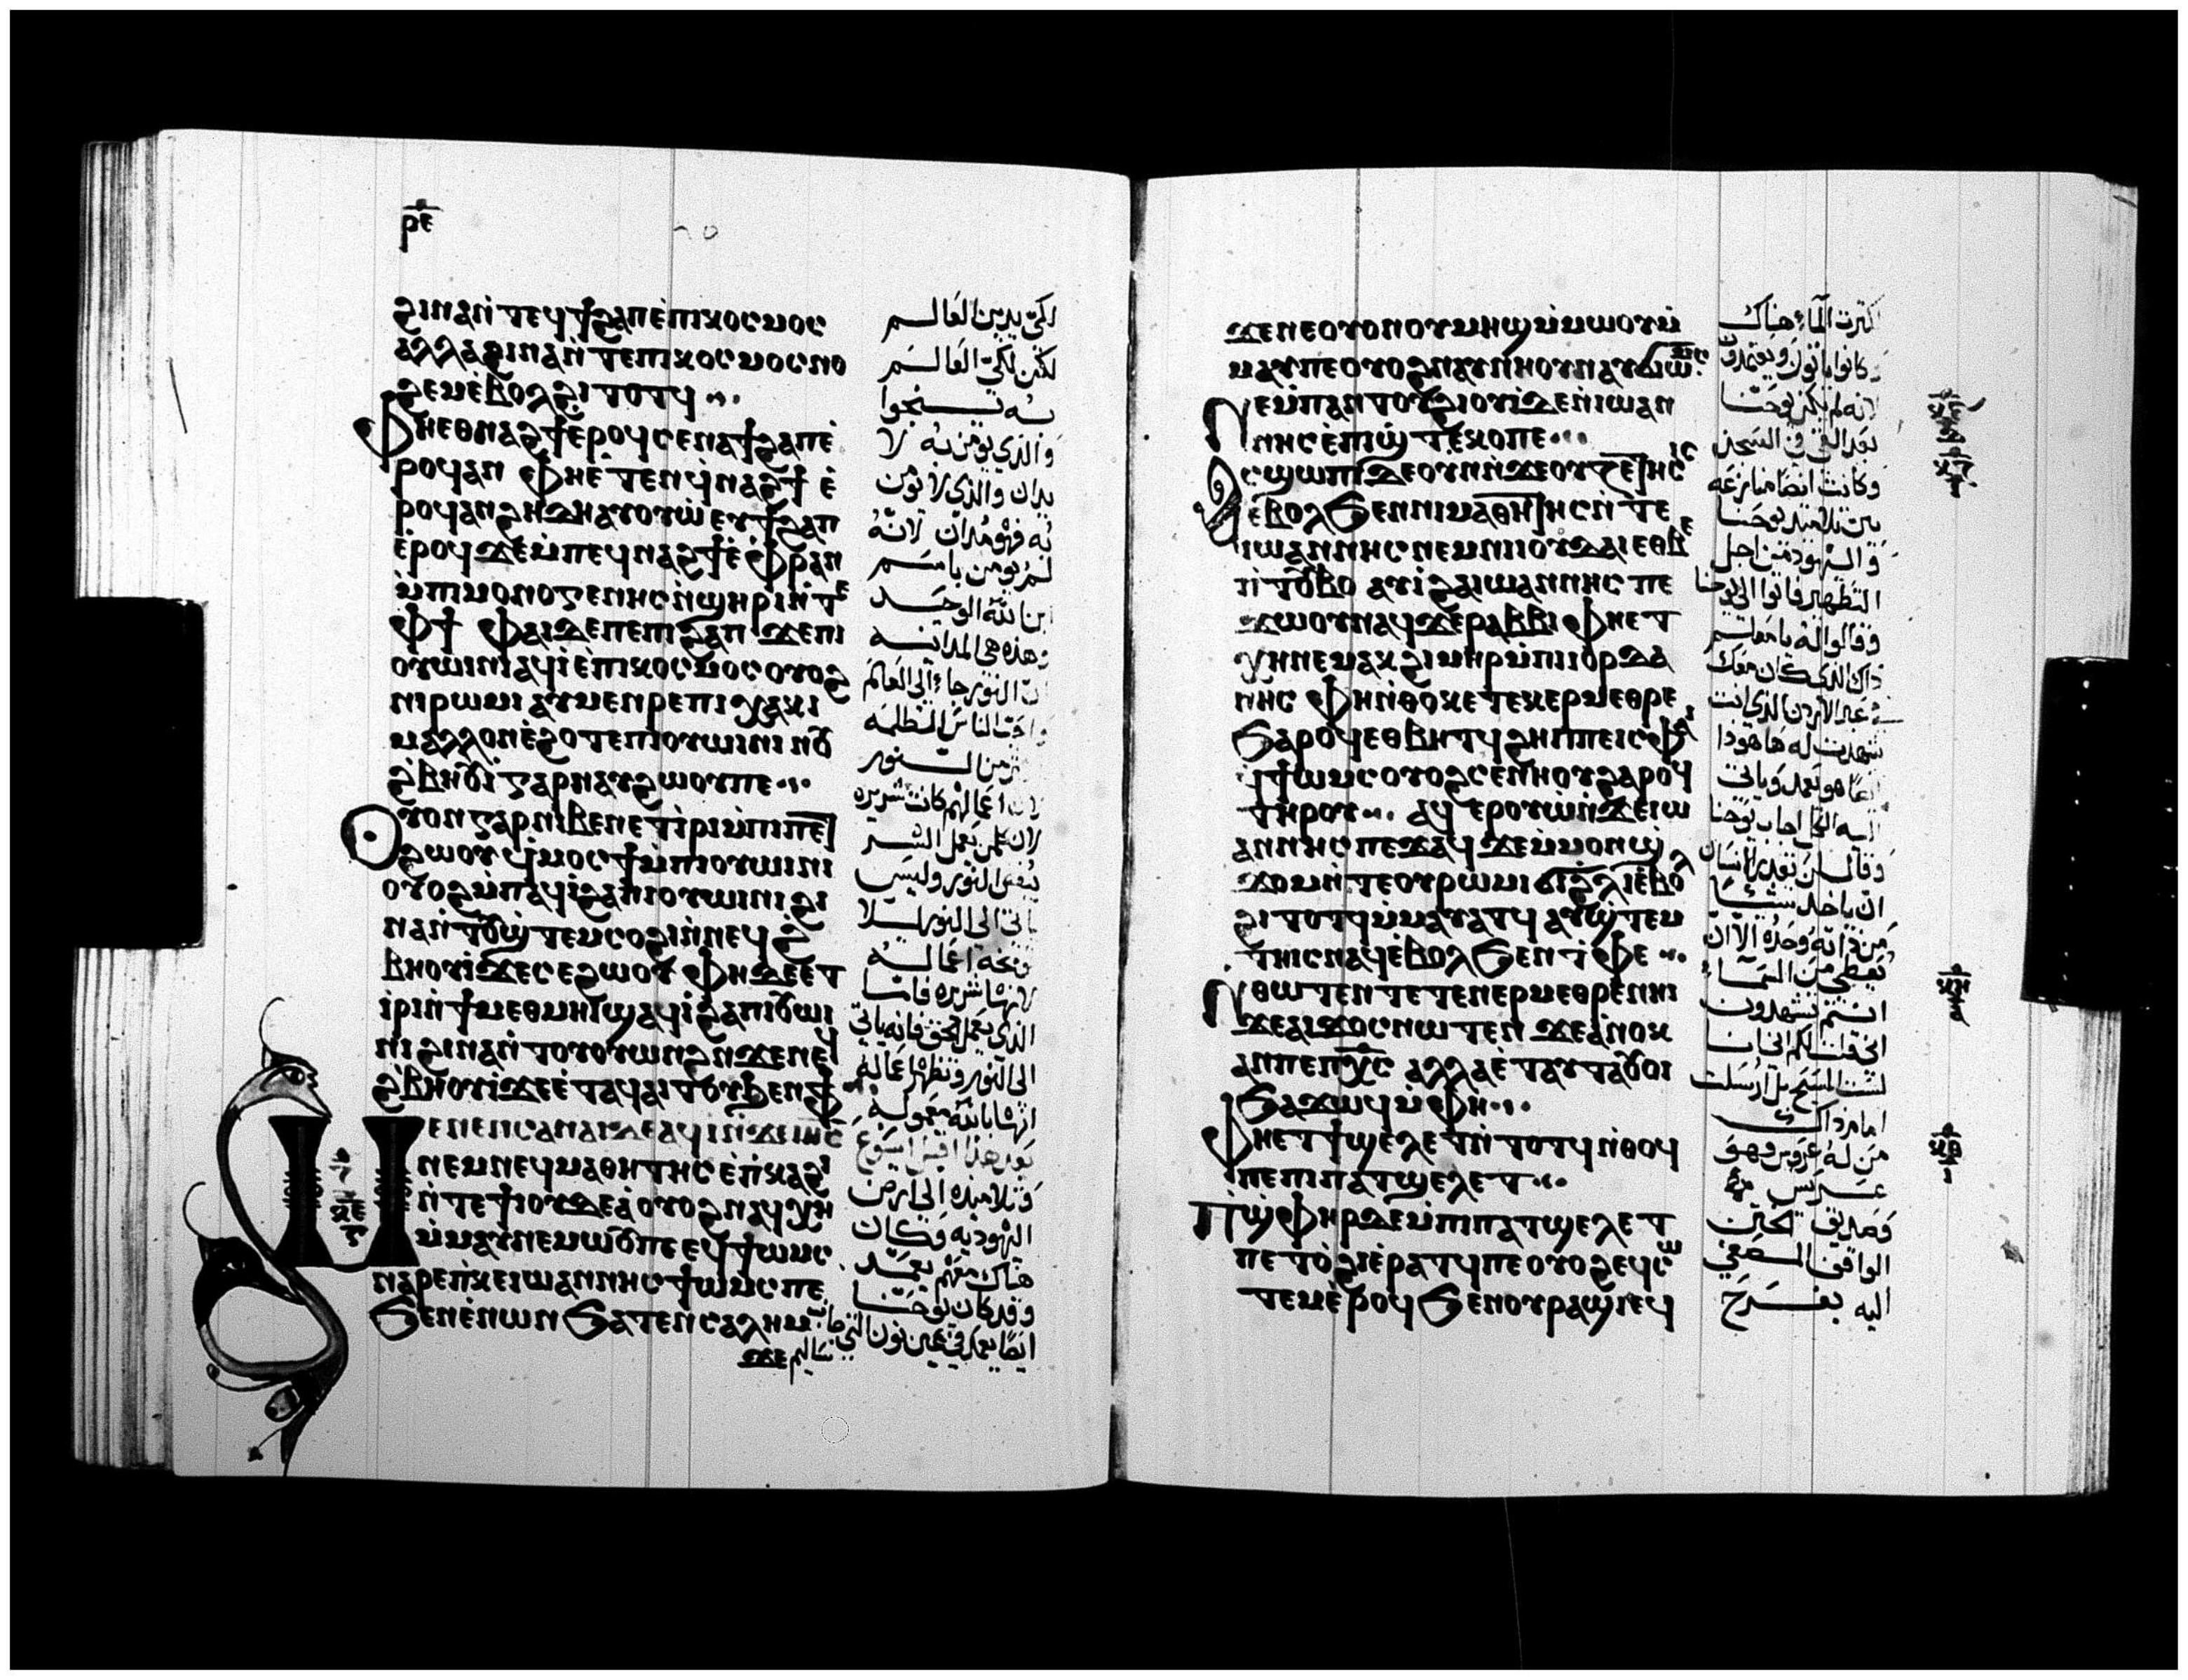 ⲣⲉ
ϩⲓⲛⲁⲛ̀ⲧⲉϥϯϩⲁⲡⲉ̀ⲡⲓⲕⲟⲥⲙⲟⲥ
ⲁⲗⲗⲁϩⲓⲛⲁⲛ̀ⲧⲉⲡⲓⲕⲟⲥⲙⲟⲥⲛⲟ
ϩⲉⲙⲉ̀ⲃⲟⲗϩⲓⲧⲟⲧϥ
ⲫⲏⲉⲑⲛⲁϩϯⲉ̀ⲣⲟϥⲥⲉⲛⲁϯϩⲁⲡⲉ̀
ⲣⲟϥⲁⲛ ⲫⲏⲉ̀ⲧⲉⲛϥ̀ⲛⲁϩϯ ⲉ̀
ⲣⲟϥⲁⲛϩⲏⲇⲏⲁⲩⲟⲩⲱ̀ⲉⲩϯϩⲁⲡ
ⲉ̀ⲣⲟϥ ϫⲉⲙ̀ⲡⲉϥⲛⲁϩϯⲉ̀ⲫⲣⲁⲛ
ⲙ̀ⲡⲓⲙⲟⲛⲟⲅⲉⲛⲏⲥⲛ̀ϣⲏⲣⲓⲛ̀ⲧⲉ
ⲫϯ ⲫⲁⲓⲇⲉⲡⲉⲡⲓϩⲁⲡ ϫⲉⲡⲓ
ⲟⲩⲱⲓⲛⲓⲁϥⲓ̀ⲉ̀ⲡⲓⲕⲟⲥⲙⲟⲥⲟⲩⲟϩ
ⲛⲓⲣⲱⲙⲓ ⲁⲩⲙⲉⲛⲣⲉⲡⲓⲭⲁⲕⲓ
ⲙⲁⲗⲗⲟⲛⲉ̀ϩⲟⲧⲉⲡⲓⲟⲩⲱⲓⲛⲓ ⲛⲟⲩ
ϩ̀ⲃⲏⲟⲩⲓ̀ⲅⲁⲣⲛⲁⲩϩⲱⲟⲩⲡⲉ
ⲟⲩⲟⲛⲅⲁⲣⲛⲓⲃⲉⲛⲉⲧⲓ̀ⲣⲓⲙ̀ⲡⲓⲡⲉⲧ
ϩⲱⲟⲩ ϥ̀ⲙⲟⲥϯⲙ̀ⲡⲓⲟⲩⲱⲓⲛⲓ
ⲟⲩⲟϩⲙ̀ⲡⲁϥⲓ̀ϩⲁⲡⲓⲟⲩⲱⲓⲛⲓ ϩⲓ
ⲛⲁⲛ̀ⲧⲟⲩϣ̀ⲧⲉⲙⲥⲟϩⲓⲛ̀ⲛⲉϥ ϩ̀
ⲃⲏⲟⲩⲓ̀ϫⲉⲥⲉϩⲱⲟⲩ ⲫⲏⲇⲉⲉⲧ
ⲓ̀ⲣⲓⲛ̀ϯⲙⲉⲑⲙⲏⲓϣⲁϥⲓ̀ϩⲁⲡⲓⲟⲩⲱⲓ
ⲛⲓ ϩⲓⲛⲁⲛ̀ⲧⲟⲩⲟⲩⲱⲛϩⲛ̀ϫⲉⲛⲉϥ
ϩ̀ⲃⲏⲟⲩⲓ̀ϫⲉⲉ̀ⲧⲁϥⲁⲓⲧⲟⲩϧⲉⲛⲫϯ
ⲙⲉⲛⲉⲛⲥⲁⲛⲁⲓⲇⲉⲁϥⲓ̀ⲛ̀ϫⲉⲓⲏⲥ
ⲛⲉⲙⲛⲉϥⲙⲁⲑⲏⲧⲏⲥⲉ̀ⲡ̀ⲕⲁϩⲓ
ⲛ̀ⲧⲉϯⲓⲟⲩⲇⲉⲁ̀ⲟⲩⲟϩⲛⲁϥⲭⲏ
ⲙ̀ⲙⲁⲩⲛⲉⲙⲱⲟⲩⲡⲉ ⲉϥϯⲱⲙⲥ
ⲛⲁⲣⲉⲡ̀ⲕⲉⲓⲱⲁⲛⲛⲏⲥϯⲱⲙⲥⲡⲉ
ϧⲉⲛⲉ̀ⲛⲱⲛ ϧⲁⲧⲉⲛⲥⲁⲗⲏⲙ
ϫⲉ
لكي يدين العالم
لكن لكي العالم
به ينجوا
والذي يومن به لا
يدان والذي لا يومن
به فهو مدان لانه
لم يومن باسم
ابن الله الوحيد
وهذه هي المداينه
ان النور جاء الي العالم
واحب الناس الظلمه
اكثر من النور
لان اعمالهم كانت شريره
لان كل من يعمل الشر
يبغض النور وليس
ياتي الي النور ليلا
توبخه اعماله
لانها شريره فاما
الذي يعمل الحق فانه ياتي
الي النور وتظهر اعماله
انها بالله معموله
بعد هذا اقبل ايسوع
وتلاميذه الي ارض
اليهوديه وكان
هناك معهم يعمد
وقد كان يوحنا
ايضا يعمد في عين نون التي جانب
ساليم
ϫⲉⲛⲉⲟⲩⲟⲛⲟⲩⲙⲏϣⲙ̀ⲙⲱⲟⲩⲙ̀
ⲙⲁⲩⲡⲉⲟⲩⲟϩⲛⲁⲩⲛⲏⲟⲩⲛⲁⲩϭⲓⲱⲙⲥ
ⲛⲉⲙ̀ⲡⲁⲛⲧⲟⲩϩⲓⲟⲩⲓ̀ϫⲉⲛ̀ⲓⲱⲁⲛ
ⲛⲏⲥⲉ̀ⲡⲓϣ̀ⲧⲉⲕⲟⲡⲉ
ⲁⲥϣⲱⲡⲓⲇⲉⲟⲩⲛⲛ̀ϫⲉⲟⲩⲍⲉⲧⲏⲥⲓⲥ
ⲉ̀ⲃⲟⲗϧⲉⲛⲛⲓⲙⲁⲑⲏⲧⲏⲥⲛ̀ⲧⲉ
ⲓⲱⲁⲛⲛⲏⲥⲛⲉⲙⲛⲓⲓⲟⲩⲇⲁⲓⲉⲑⲃⲉ
ⲡⲓⲧⲟⲩⲃⲟ ⲁⲩⲓ̀ϩⲁⲓⲱⲁⲛⲛⲏⲥ ⲡⲉ
ϫⲱⲟⲩⲛⲁϥϫⲉⲣⲁⲃⲃⲓ ⲫⲏⲉⲧ
ⲭⲏⲛⲉⲙⲁⲕϩⲓⲙⲏⲣⲙ̀ⲡⲓⲓⲟⲣⲇⲁ
ⲛⲏⲥ ⲫⲏⲛ̀ⲑⲟⲕⲉⲧⲉⲕⲉⲣⲙⲉⲑⲣⲉ
ϧⲁⲣⲟϥⲉⲑⲃⲏⲧϥ ϩⲏⲡⲡⲉⲓⲥⲫⲁⲓ
ϥ̀ϯⲱⲙⲥⲟⲩⲟϩⲥⲉⲛⲏⲟⲩϩⲁⲣⲟϥ
ⲧⲏⲣⲟⲩ ⲁϥⲉⲣⲟⲩⲱⲛ̀ϫⲉⲓⲱ
ⲁⲛⲛⲏⲥⲡⲉϫⲁϥ ϫⲉⲙ̀ⲙⲟⲛϣ̀
ϫⲟⲙⲛ̀ⲧⲉⲟⲩⲣⲱⲙⲓ ϭⲓϩⲗⲓⲉ̀ⲃⲟⲗ
ϩⲓⲧⲟⲧϥⲙ̀ⲙⲁⲩⲁⲧϥ ⲁⲩϣ̀ⲧⲉⲙ
ⲧⲏⲓⲥⲛⲁϥⲉ̀ⲃⲟⲗϧⲉⲛⲧ̀ⲫⲉ
ⲛ̀ⲑⲱⲧⲉⲛⲧⲉⲧⲉⲛⲉⲣⲙⲉⲑⲣⲉⲛⲏⲓ
ϫⲉⲁⲓϫⲟⲥⲛⲱⲧⲉⲛ ϫⲉⲁ̀ⲛⲟⲕ
ⲁⲛⲡⲉⲡⲭ̅ⲥ̅ ⲁⲗⲗⲁⲉ̀ⲧⲁⲩⲧⲁⲟⲩⲟⲓ
ϧⲁϫⲱϥⲙ̀ⲫⲏ
ⲫⲏⲉⲧϯϣⲉ̀ⲗⲉⲧⲛ̀ⲧⲟⲧϥⲛ̀ⲑⲟϥ
ⲡⲉⲡⲓⲡⲁⲧϣⲉⲗⲉⲧ
ⲡⲓϣ̀ⲫⲏⲣⲇⲉⲙ̀ⲡⲓⲡⲁⲧϣⲉⲗⲉⲧ
ⲡⲉⲧⲟ̀ϩⲓⲉ̀ⲣⲁⲧϥⲡⲉⲟⲩⲟϩⲉϥⲥⲱ
ⲧⲉⲙⲉ̀ⲣⲟϥ ϧⲉⲛⲟⲩⲣⲁϣⲓⲉϥ
لكثرت المآء هناك
وكانوا ياتون ويعتمدون
لانه لم يكن يوحنا
بعد القي في السجن
وكانت ايضا منازعه
بين تلاميذ يوحنا
واليهود من اجل
التطهير فاتوا الي يوحنا
وقالوا له يامعلم
ذاك الذي كان معك
في عبر الاردن الذي انت
شهدت له ها هوذا
ايضا هو يعمد وياتي
اليه الكل اجاب يوحنا
وقال لن يقدر الانسان
ان ياخذ شيئا
من ذاته وحده الا ان
يعطي من السمآء
انتم تشهدون
اني قلت لكم اني انا
لست المسيح بل ارسلت
امام ذاك
من له عروس فهو
عريس
وصديق الختن
الواقف المصغي
اليه بفرح
ⲕⲏ
ⲕⲑ